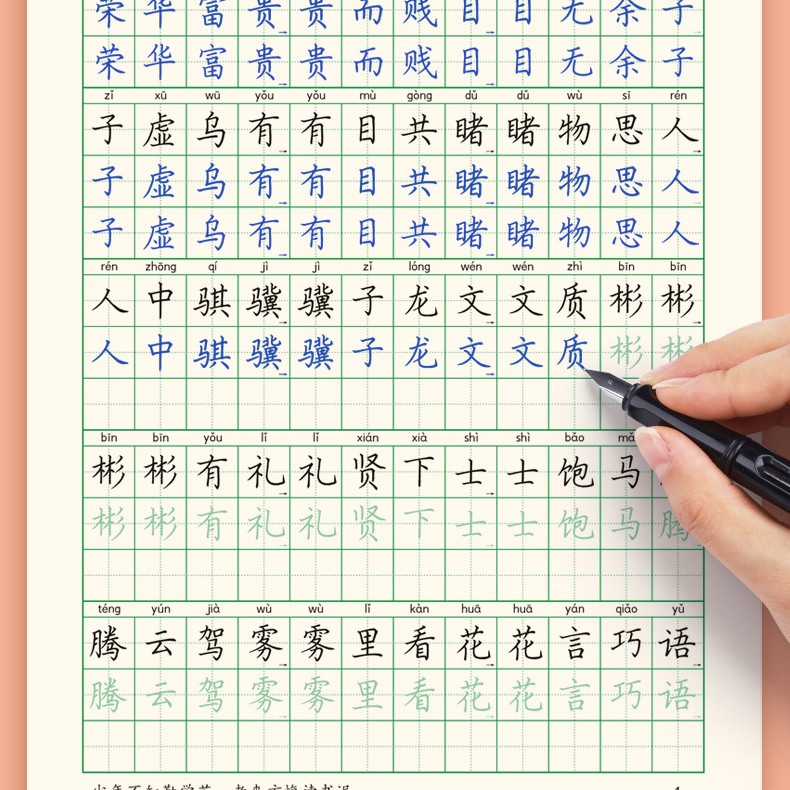 荣 华 富 贵 贵 而 贱 目 目 无 余 子
荣 华 富 贵 贵 而 贱 目 目 无 余 子
zǐ xū wū yǒu yǒu mù gòng dǔ dǔ wù sī rén
子 虚 乌 有 有 目 共 睹 睹 物 思 人
子 虚 乌 有 有 目 共 睹 睹 物 思 人
子 虚 乌 有 有 目 共 睹 睹 物 思 人
rén zhōng qí jì jì zǐ lóng wén wén zhì bīn bīn
人 中 骐 骥 骥 子 龙 文 文 质 彬 彬
人 中 骐 骥 骥 子 龙 文 文 质 彬 彬
bīn bīn yǒu lǐ lǐ xián xià shì shì bǎo mǎ
彬 彬 有 礼 礼 贤 下 士 士 饱 马
彬 彬 有 礼 礼 贤 下 士 士 饱 马 腾
téng yún jià wù wù lǐ kàn huā huā yán qiǎo yǔ
腾 云 驾 雾 雾 里 看 花 花 言 巧 语
腾 云 驾 雾 雾 里 看 花 花 言 巧 语